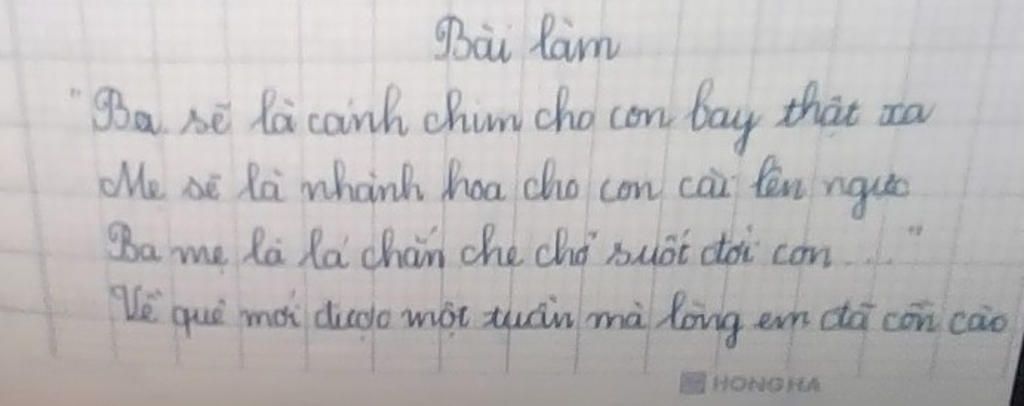 Bài làm
"Ba sẽ là cánh chim cho con bay thật xa
Mẹ sẽ là nhành hoa cho con cài lên ngực
Ba mẹ là lá chắn che chở suốt đời con...."
Về quê mới được một tuần mà lòng em đã cồn cào
HONGHA